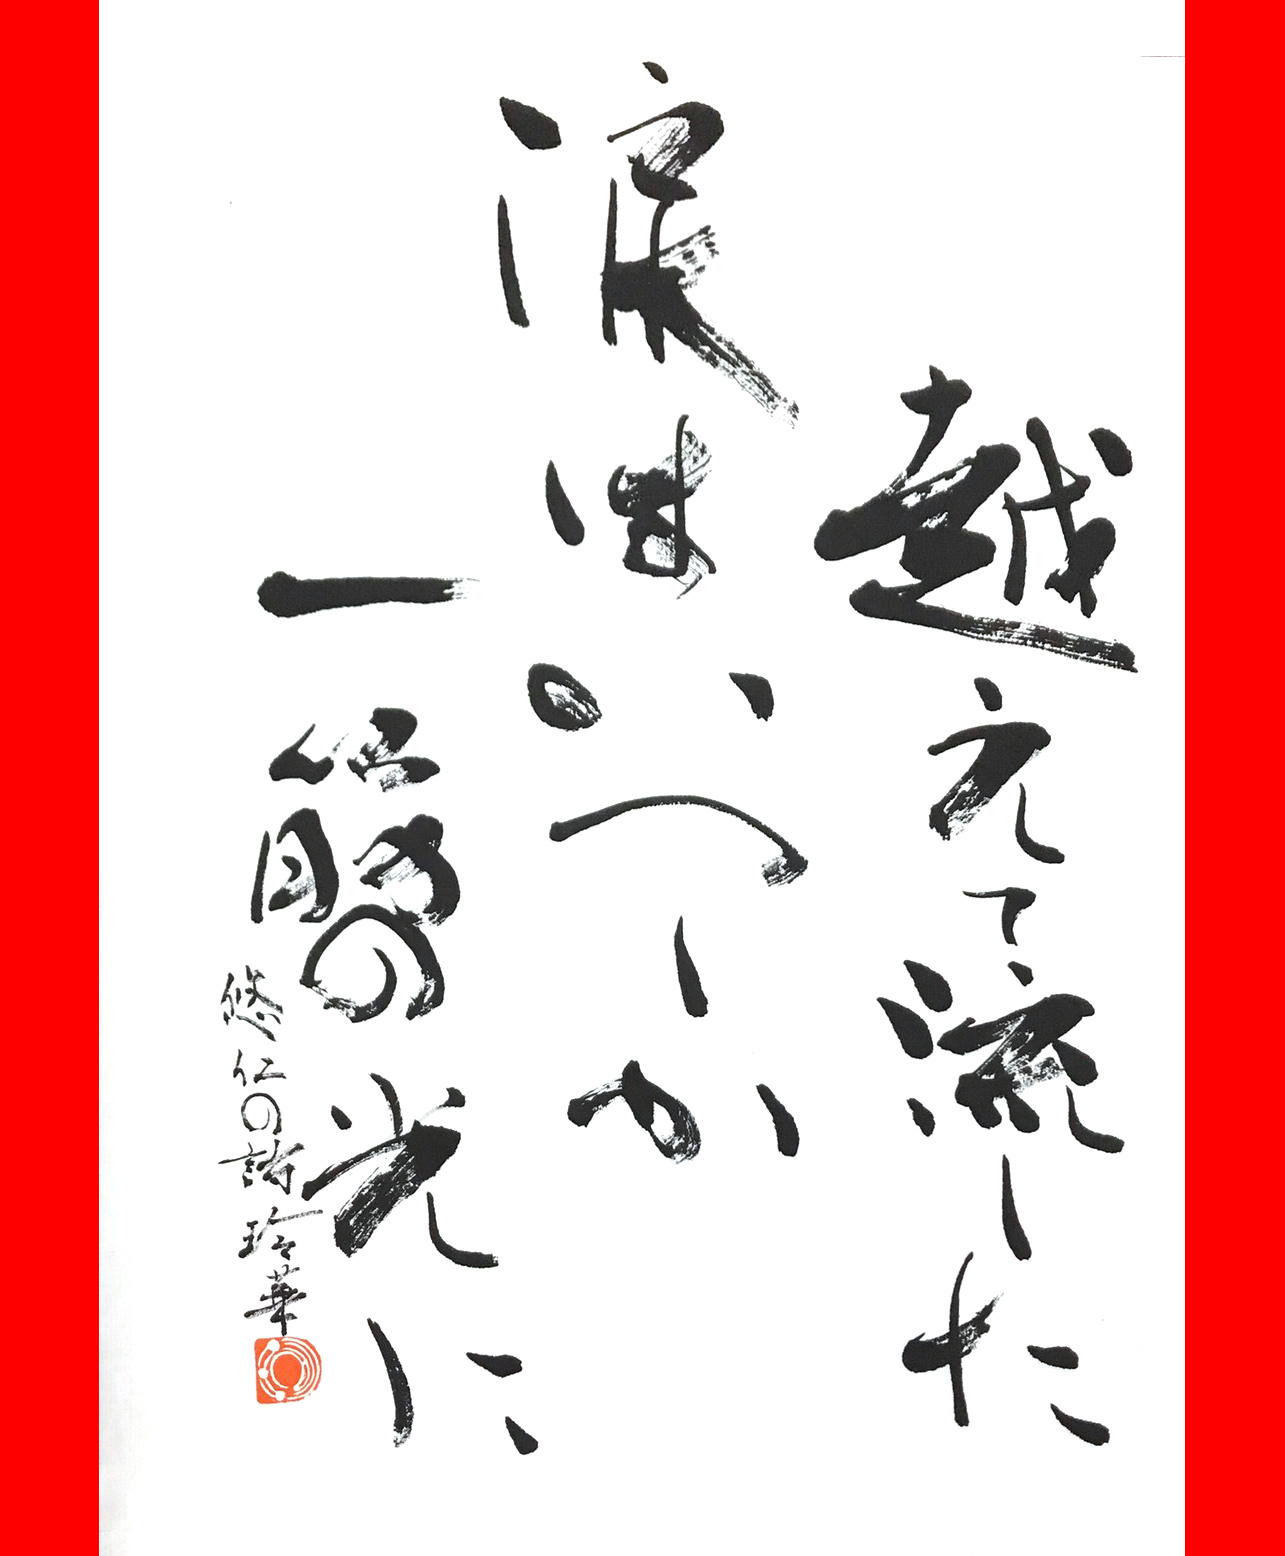 越えて流した
涙はいつしか
一筋の光に
悠仁の詩 玲華